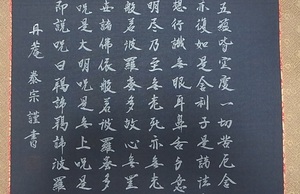 五蘊皆空度一切苦厄舍
亦復如是舍利子是諸法
想行識無眼耳鼻舌身意
明尽乃至無老死亦無老
般若波羅蜜多故心無罣
世諸佛依般若波羅蜜多
咒是大明咒是無上咒是
即説咒曰羯諦羯諦波羅
丹菴 泰宗謹書